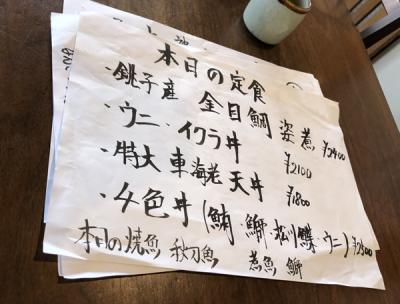 本日の定食
・銚子産 金目鯛 姿煮 ¥2400
・ウニ・イクラ丼 ¥2100
・特大車海老天丼 ¥1800
・4色丼(鮪 鰤 松川鰈 ウニ) ¥2300
本日の焼魚 秋刀魚 煮魚 鰤